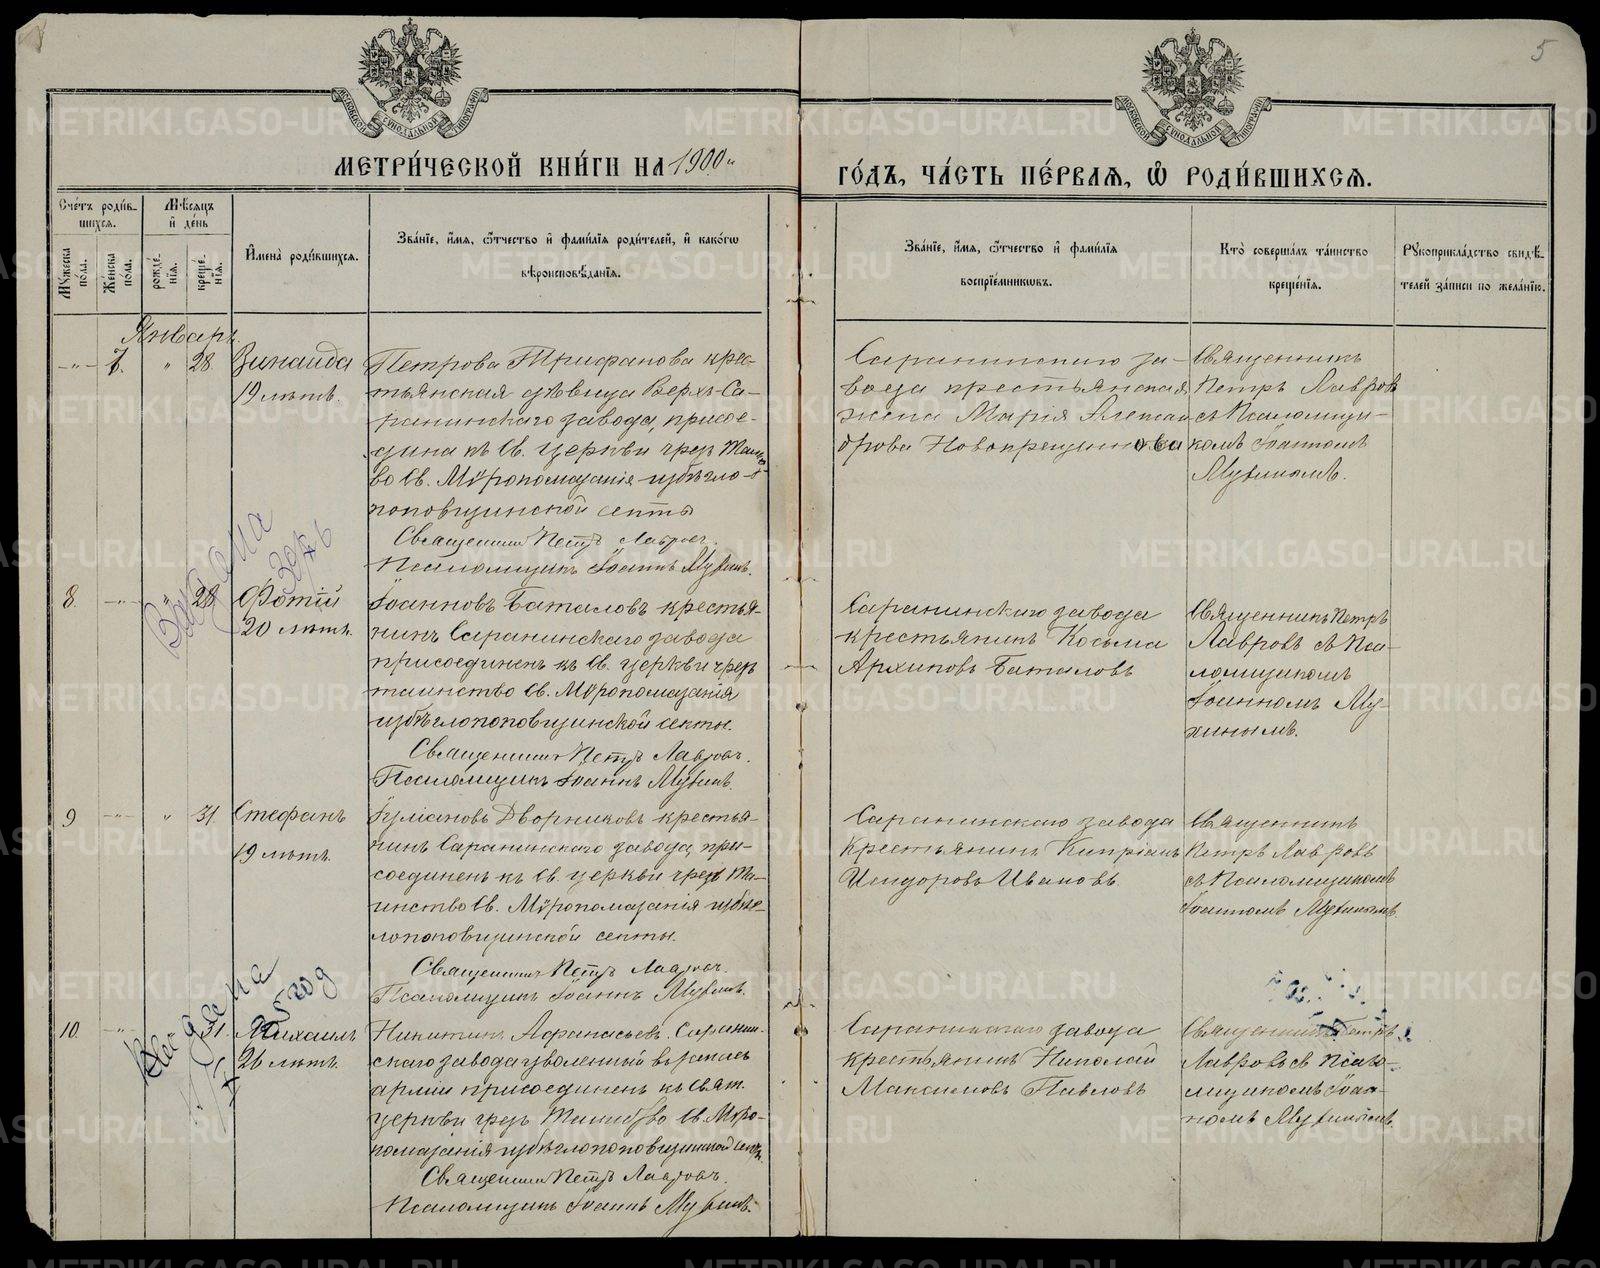 5
МОСКОВСКОЙ СѴНОДАЛЬНОЙ ТИПОГРАФІИ
МОСКОВСКОЙ СѴНОДАЛЬНОЙ ТИПОГРАФІИ
МЕТРИ́ЧЕСКОЙ КНИ́ГИ НА 1900й
ГО́ДЪ, ЧА́СТЬ ПЕ́РВАЯ, Ѡ РОДИ́ВШИХСЯ.
Сче́тъ роди́в-
шихся.
Мꙋжеска по́ла.
Же́нска по́ла.
Мѣ́сяцъ
и҆ де́нь
рожде́нія.
креще́нія.
И҆мена̀ роди́вшихся.
Зва́ніе, и҆́мя, ѻ҆́тчество и҆ фами́лія роди́телей, и҆ како́гѡ
вѣроисповѣ́данія.
Зва́ніе, и҆́мя, ѻ҆́тчество и҆ фами́лія
воспріе́мникѡвъ.
Кто̀ соверша́лъ та́инство
креще́нія.
Рꙋкоприкла́дство свидѣ́-
телей за́писи по жела́нію.
Январь
-"- 7. " 28.
Зинаида
19 лѣтъ.
Петрова Трифанова крес-
тьянская дѣвица Верхъ-Са-
ранинскаго завода, присое-
дина къ Св. церкви чрез Таин
во Св. Мѵропомазанія избѣгло-
поповщинской секты
Священникъ Петръ Лавровъ.
Псаломщикъ Іоаннъ Мухинъ.
Саранинскаго за-
вода крестьянская
жена Марія Алексан
дрова Новокрещеннова
Священникъ
Петръ Лавров
съ Псаломщи-
комъ Іоанномъ
Мухинымъ.
8. -"- " 28.
Фотій
20 лѣтъ.
Іоанновъ Баталовъ крестья-
нинъ Саранинскаго завода
присоединенъ къ Св. церкви чрезъ
таинство Св. Мѵропомазанія
избѣглопоповщинской секты.
Священникъ Петръ Лавровъ.
Псаломщикъ Іоаннъ Мухинъ.
Саранинскаго завода
крестьянинъ Косьма
Архиповъ Баталовъ
Священникъ Петръ
Лавровъ съ Пса-
ломщикомъ
Іоанномъ Му-
хинымъ.
9 -"- " 31.
Стефанъ
19 лѣтъ.
Іуліановъ Дворниковъ крестья-
нинъ Саранинскаго завода, при-
соединенъ къ Св. церкви чрезъ Та-
инство Св. Мѵропомазанія избѣг-
лопоповщинской секты.
Священникъ Петръ Лавровъ.
Псаломщикъ Іоаннъ Мухинъ.
Саранинскаго завода
Крестьянинъ Кипріанъ
Исидоровъ Ивановъ.
Священникъ
Петръ Лавровъ
съ Псаломщикомъ
Іоанномъ Мухинымъ.
10. -"- 31.
Михаилъ
26 лѣтъ.
Никитинъ Афанасьевъ Саранин-
скаго завода уволенный в запасъ
арміи присоединенъ къ Свят.
церкви чрезъ Таинство Св. Мѵро-
помазанія избѣглопоповщинской секты.
Священникъ Петръ Лавровъ.
Псаломщикъ Іоаннъ Мухинъ.
Саранинскаго завода
крестьянинъ Николай
Максимовъ Павловъ
Священникъ Петръ
Лавровъ съ Псало-
мщикомъ Іоан-
номъ Мухинымъ.
METRIKI.GASO-URAL.RU